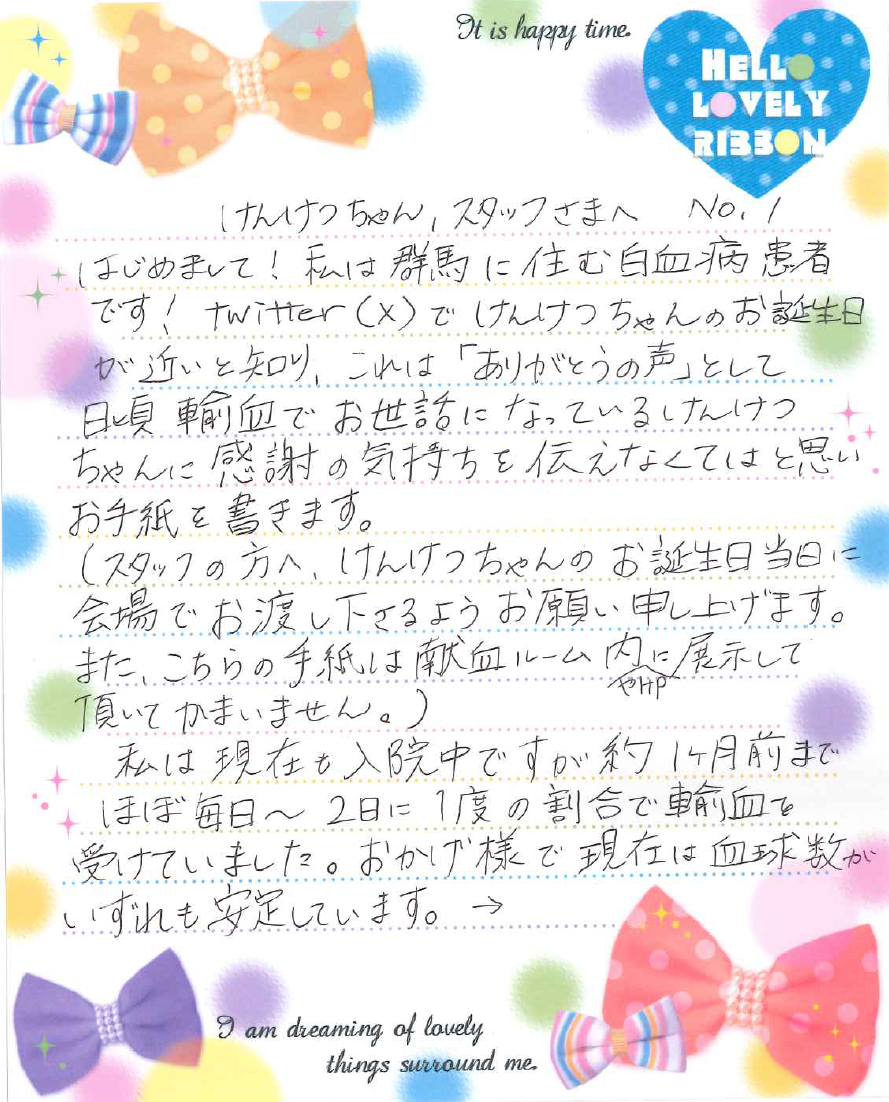 It is happy time.
HELLO
LOVELY
RIBBON
けんけつちゃん,スタッフさまへ No.1
はじめまして!私は群馬に住む白血病患者
です!twitter(X)でけんけつちゃんのお誕生日
が近いと知り、これは「ありがとうの声」として
日頃輸血でお世話になっているけんけつ
ちゃんに感謝の気持ちを伝えなくてはと思い
お手紙を書きます。
(スタッフの方へ、けんけつちゃんのお誕生日当日に
会場でお渡し下さるようお願い申し上げます。
また、こちらの手紙は献血ルーム内に展示して
やHP
頂いてかまいません。)
私は現在も入院中ですが約1ヶ月前まで
ほぼ毎日〜2日に1度の割合で輸血を
受けていました。おかげ様で現在は血球数が
いずれも安定しています。→
I am dreaming of lovely
things surround me.